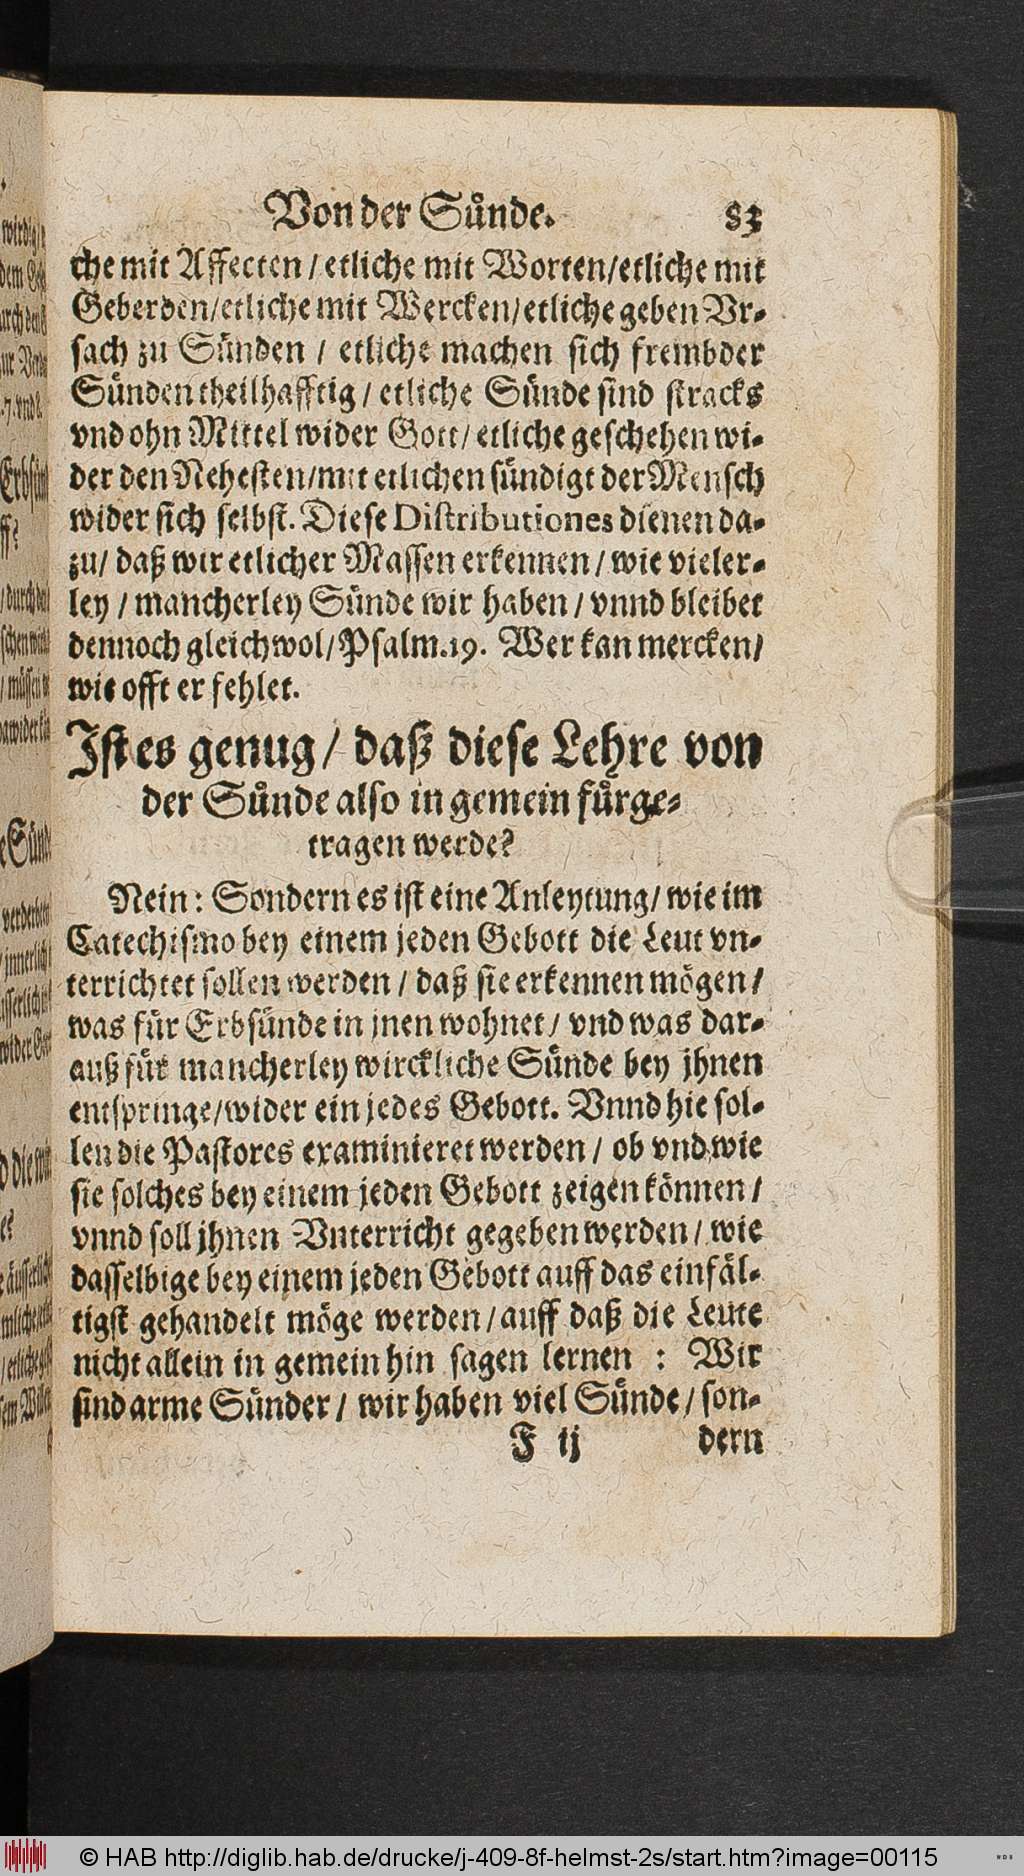 Von der Sünde. 83
che mit Affecten / etliche mit Worten/etliche mit
Geberden/etliche mit Wercken/etliche geben Vr-
sach zu Sünden / etliche machen sich frembder
Sünden theilhafftig / etliche Sünde sind stracks
vnd ohn Mittel wider Gott/ etliche geschehen wi-
der den Nehesten/mit etlichen sündigt der Mensch
wider sich selbst. Diese Distributiones dienen da-
zu/ daß wir etlicher Massen erkennen / wie vieler-
ley / mancherley Sünde wir haben / vnnd bleibet
dennoch gleichwol/Psalm.19. Wer kan mercken/
wie offt er fehlet.
Ist es genug / daß diese Lehre von
der Sünde also in gemein fürge-
tragen werde?
Nein: Sondern es ist eine Anleytung/ wie im
Catechismo bey einem jeden Gebott die Leut vn-
terrichtet sollen werden / daß sie erkennen mögen/
was für Erbsünde in jnen wohnet / vnd was dar-
auß für mancherley wirckliche Sünde bey jhnen
entspringe/wider ein jedes Gebott. Vnnd hie sol-
len die Pastores examinieret werden / ob vnd wie
sie solches bey einem jeden Gebott zeigen können /
vnnd soll jhnen Vnterricht gegeben werden / wie
dasselbige bey einem jeden Gebott auff das einfäl-
tigst gehandelt möge werden / auff daß die Leute
nicht allein in gemein hin sagen lernen : Wir
sind arme Sünder / wir haben viel Sünde / son-
F ij dern
© HAB http://diglib.hab.de/drucke/j-409-8f-helmst-2s/start.htm?image=00115